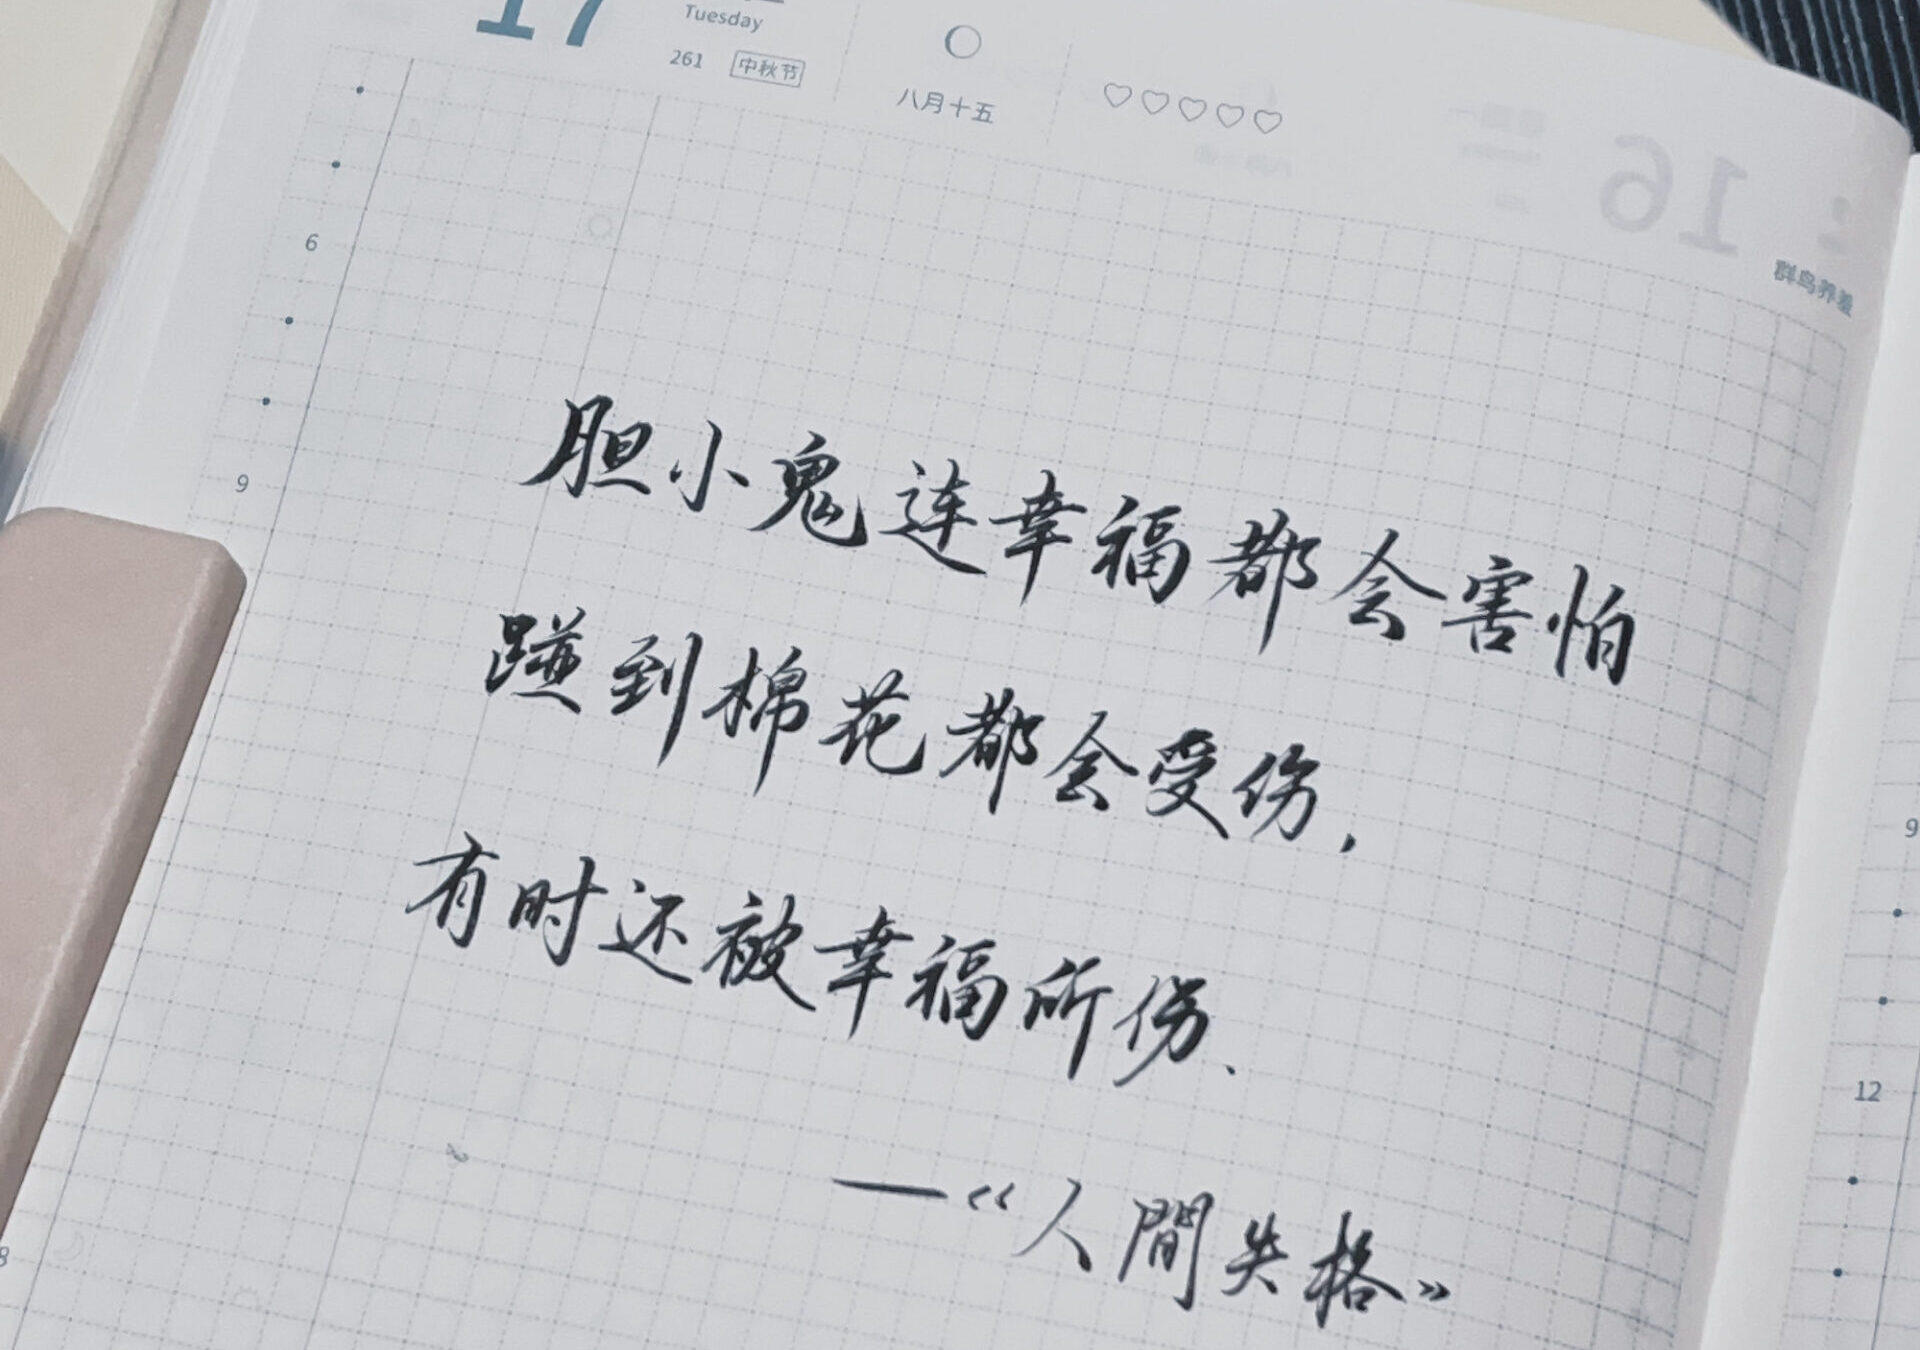 17
Tuesday
261 中秋节
八月十五
16
群鸟养羞
6
9
胆小鬼连幸福都会害怕
碰到棉花都会受伤，
有时还被幸福所伤、
—《人間失格》
9
12